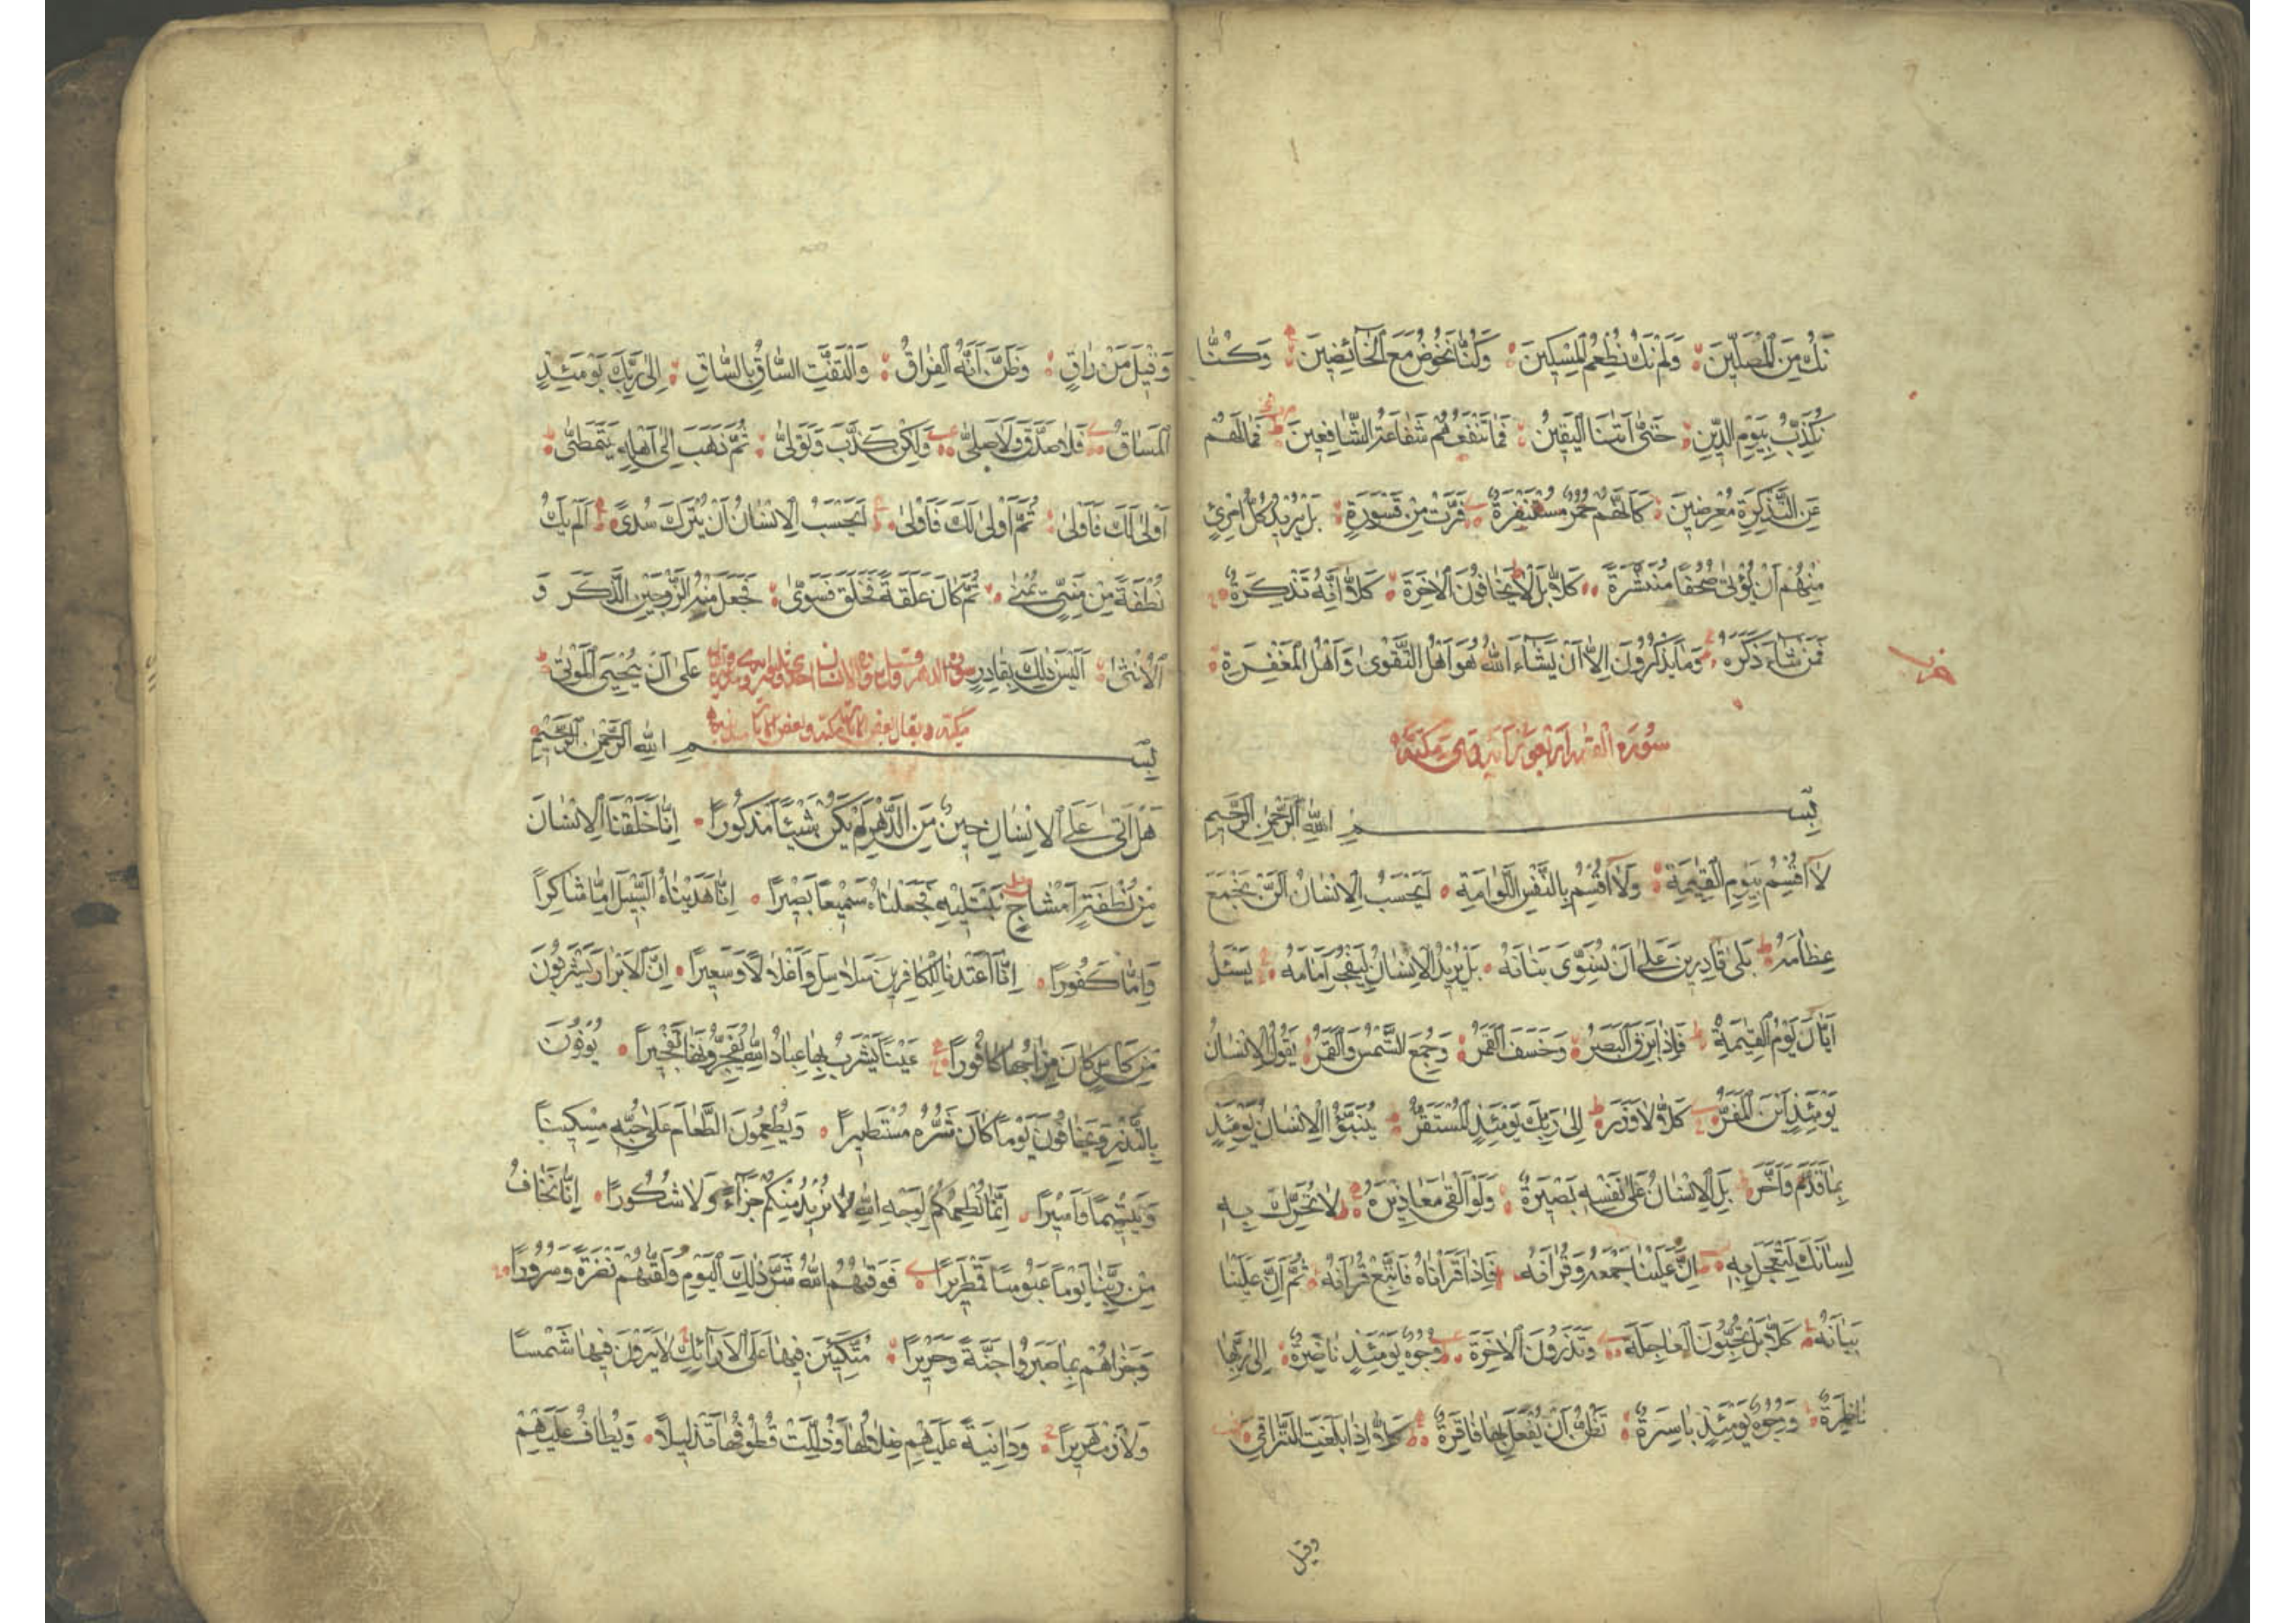 نَكُ مِنَ الْمُصَلِّينَ وَلَمْ نَكُ نُطْعِمُ الْمِسْكِينَ وَكُنَّا نَخُوضُ مَعَ الْخَائِضِينَ وَكُنَّا
نُكَذِّبُ بِيَوْمِ الدِّينِ حَتَّى أَتَيْنَا الْيَقِينُ فَمَا تَنْفَعُهُمْ شَفَاعَةُ الشَّافِعِينَ فَمَا لَهُمْ
عَنِ التَّذْكِرَةِ مُعْرِضِينَ كَأَنَّهُمْ حُمُرٌ مُسْتَنْفِرَةٌ فَرَّتْ مِنْ قَسْوَرَةٍ بَلْ يُرِيدُ كُلُّ امْرِئٍ
مِنْهُمْ أَنْ يُؤْتَى صُحُفًا مُنَشَّرَةً كَلَّا بَلْ لَا يَخَافُونَ الْآخِرَةَ كَلَّا إِنَّهُ تَذْكِرَةٌ
فَمَنْ شَاءَ ذَكَرَهُ وَمَا يَذْكُرُونَ إِلَّا أَنْ يَشَاءَ اللَّهُ هُوَ أَهْلُ التَّقْوَى وَأَهْلُ الْمَغْفِرَةِ
سورة القيمة اربعون اية وهي مكية
بِسْمِ اللَّهِ الرَّحْمَنِ الرَّحِيمِ
لَا أُقْسِمُ بِيَوْمِ الْقِيمَةِ وَلَا أُقْسِمُ بِالنَّفْسِ اللَّوَّامَةِ أَيَحْسَبُ الْإِنْسَانُ أَلَّنْ نَجْمَعَ
عِظَامَهُ بَلَى قَادِرِينَ عَلَى أَنْ نُسَوِّيَ بَنَانَهُ بَلْ يُرِيدُ الْإِنْسَانُ لِيَفْجُرَ أَمَامَهُ يَسْئَلُ
أَيَّانَ يَوْمُ الْقِيمَةِ فَإِذَا بَرِقَ الْبَصَرُ وَخَسَفَ الْقَمَرُ وَجُمِعَ الشَّمْسُ وَالْقَمَرُ يَقُولُ الْإِنْسَانُ
يَوْمَئِذٍ أَيْنَ الْمَفَرُّ كَلَّا لَا وَزَرَ إِلَى رَبِّكَ يَوْمَئِذٍ الْمُسْتَقَرُّ يُنَبَّؤُا الْإِنْسَانُ يَوْمَئِذٍ
بِمَا قَدَّمَ وَأَخَّرَ بَلِ الْإِنْسَانُ عَلَى نَفْسِهِ بَصِيرَةٌ وَلَوْ أَلْقَى مَعَاذِيرَهُ لَا تُحَرِّكْ بِهِ
لِسَانَكَ لِتَعْجَلَ بِهِ إِنَّ عَلَيْنَا جَمْعَهُ وَقُرْآنَهُ فَإِذَا قَرَأْنَاهُ فَاتَّبِعْ قُرْآنَهُ ثُمَّ إِنَّ عَلَيْنَا
بَيَانَهُ كَلَّا بَلْ تُحِبُّونَ الْعَاجِلَةَ وَتَذَرُونَ الْآخِرَةَ وُجُوهٌ يَوْمَئِذٍ نَاضِرَةٌ إِلَى رَبِّهَا
نَاظِرَةٌ وَوُجُوهٌ يَوْمَئِذٍ بَاسِرَةٌ تَظُنُّ أَنْ يُفْعَلَ بِهَا فَاقِرَةٌ كَلَّا إِذَا بَلَغَتِ التَّرَاقِيَ
وقيل
وَقِيلَ مَنْ رَاقٍ وَظَنَّ أَنَّهُ الْفِرَاقُ وَالْتَفَّتِ السَّاقُ بِالسَّاقِ إِلَى رَبِّكَ يَوْمَئِذٍ
الْمَسَاقُ فَلَا صَدَّقَ وَلَا صَلَّى وَلَكِنْ كَذَّبَ وَتَوَلَّى ثُمَّ ذَهَبَ إِلَى أَهْلِهِ يَتَمَطَّى
أَوْلَى لَكَ فَأَوْلَى ثُمَّ أَوْلَى لَكَ فَأَوْلَى أَيَحْسَبُ الْإِنْسَانُ أَنْ يُتْرَكَ سُدًى أَلَمْ يَكُ
نُطْفَةً مِنْ مَنِيٍّ يُمْنَى ثُمَّ كَانَ عَلَقَةً فَخَلَقَ فَسَوَّى فَجَعَلَ مِنْهُ الزَّوْجَيْنِ الذَّكَرَ وَ
الْأُنْثَى أَلَيْسَ ذَلِكَ بِقَادِرٍ عَلَى أَنْ يُحْيِيَ الْمَوْتَى
بِسْمِ اللَّهِ الرَّحْمَنِ الرَّحِيمِ
هَلْ أَتَى عَلَى الْإِنْسَانِ حِينٌ مِنَ الدَّهْرِ لَمْ يَكُنْ شَيْئًا مَذْكُورًا إِنَّا خَلَقْنَا الْإِنْسَانَ
مِنْ نُطْفَةٍ أَمْشَاجٍ نَبْتَلِيهِ فَجَعَلْنَاهُ سَمِيعًا بَصِيرًا إِنَّا هَدَيْنَاهُ السَّبِيلَ إِمَّا شَاكِرًا
وَإِمَّا كَفُورًا إِنَّا أَعْتَدْنَا لِلْكَافِرِينَ سَلَاسِلَ وَأَغْلَالًا وَسَعِيرًا إِنَّ الْأَبْرَارَ يَشْرَبُونَ
مِنْ كَأْسٍ كَانَ مِزَاجُهَا كَافُورًا عَيْنًا يَشْرَبُ بِهَا عِبَادُ اللَّهِ يُفَجِّرُونَهَا تَفْجِيرًا يُوفُونَ
بِالنَّذْرِ وَيَخَافُونَ يَوْمًا كَانَ شَرُّهُ مُسْتَطِيرًا وَيُطْعِمُونَ الطَّعَامَ عَلَى حُبِّهِ مِسْكِينًا
وَيَتِيمًا وَأَسِيرًا إِنَّمَا نُطْعِمُكُمْ لِوَجْهِ اللَّهِ لَا نُرِيدُ مِنْكُمْ جَزَاءً وَلَا شُكُورًا إِنَّا نَخَافُ
مِنْ رَبِّنَا يَوْمًا عَبُوسًا قَمْطَرِيرًا فَوَقَيهُمُ اللَّهُ شَرَّ ذَلِكَ الْيَوْمِ وَلَقَّيهُمْ نَضْرَةً وَسُرُورًا
وَجَزَاهُمْ بِمَا صَبَرُوا جَنَّةً وَحَرِيرًا مُتَّكِئِينَ فِيهَا عَلَى الْأَرَائِكِ لَا يَرَوْنَ فِيهَا شَمْسًا
وَلَا زَمْهَرِيرًا وَدَانِيَةً عَلَيْهِمْ ظِلَالُهَا وَذُلِّلَتْ قُطُوفُهَا تَذْلِيلًا وَيُطَافُ عَلَيْهِمْ